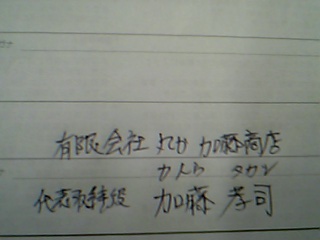 有限会社 マルカ 加藤商店
カトウ タカシ
代表取締役 加藤 孝司